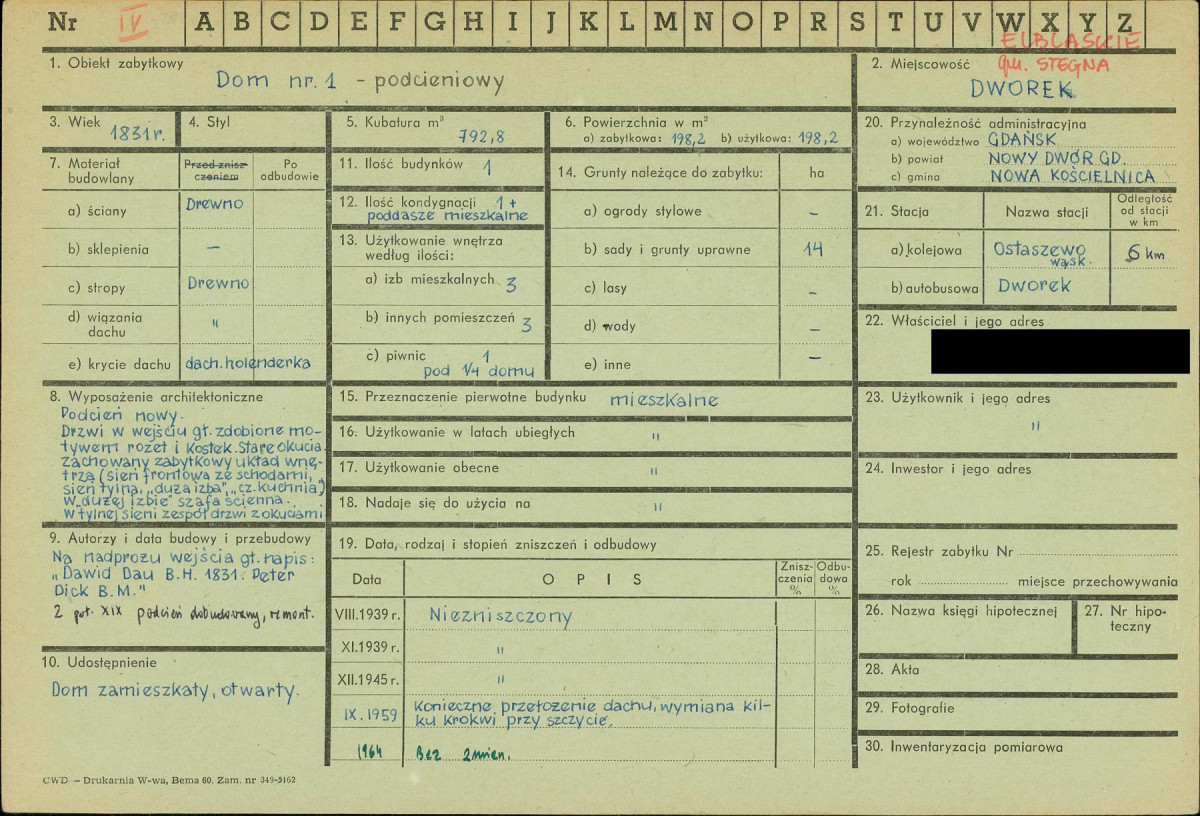 Nr IV A B C D E F G H I J K L M N O P R S T U V W X Y Z
ELBLĄSKIE
gm. STEGNA
1. Obiekt zabytkowy
Dom nr. 1 - podcieniowy
2. Miejscowość
DWOREK
3. Wiek
1831 r.
4. Styl
5. Kubatura m³
792,8
6. Powierzchnia w m²
a) zabytkowa: 198,2 b) użytkowa: 198,2
20. Przynależność administracyjna
a) województwo GDAŃSK
b) powiat NOWY DWÓR GD.
c) gmina NOWA KOŚCIELNICA
7. Materiał budowlany
Przed zniszczeniem
Po odbudowie
a) ściany Drewno
b) sklepienia —
c) stropy Drewno
d) wiązania dachu "
e) krycie dachu dach. holenderka
11. Ilość budynków 1
12. Ilość kondygnacji 1 +
poddasze mieszkalne
13. Użytkowanie wnętrza
według ilości:
a) izb mieszkalnych 3
b) innych pomieszczeń 3
c) piwnic 1
pod 1/4 domu
14. Grunty należące do zabytku: ha
a) ogrody stylowe –
b) sady i grunty uprawne 14
c) lasy –
d) wody –
e) inne –
21. Stacja
Nazwa stacji
Odległość
od stacji
w km
a) kolejowa Ostaszewo
wąsk. 6 km
b) autobusowa Dworek
22. Właściciel i jego adres
8. Wyposażenie architektoniczne
Podcień nowy.
Drzwi w wejściu gł. zdobione mo-
tywem rozet i kostek. Stare okucia.
zachowany zabytkowy układ wnę-
trza (sień frontowa ze schodami,
sień tylna, „duża izba", „cz. kuchnia)
W „dużej izbie" szafa ścienna.
W tylnej sieni zespół drzwi z okuciami
15. Przeznaczenie pierwotne budynku mieszkalne
16. Użytkowanie w latach ubiegłych "
17. Użytkowanie obecne "
18. Nadaje się do użycia na "
23. Użytkownik i jego adres
"
24. Inwestor i jego adres
9. Autorzy i data budowy i przebudowy
Na nadprożu wejścia gł. napis:
„Dawid Dau B.H. 1831. Peter
Dick B.M."
2 poł. XIX podcień dobudowany, remont.
19. Data, rodzaj i stopień zniszczeń i odbudowy
Data
O P I S
Znisz-
czenia
%
Odbu-
dowa
%
VIII.1939 r. Niezniszczony
XI.1939 r. "
XII.1945 r. "
IX.1959 Konieczne przełożenie dachu, wymiana kil-
ku krokwi przy szczycie.
1964 Bez zmian.
25. Rejestr zabytku Nr
rok miejsce przechowywania
26. Nazwa księgi hipotecznej
27. Nr hipo-
teczny
10. Udostępnienie
Dom zamieszkały, otwarty.
28. Akta
29. Fotografie
30. Inwentaryzacja pomiarowa
CWD — Drukarnia W-wa, Bema 60. Zam. nr 349-5162